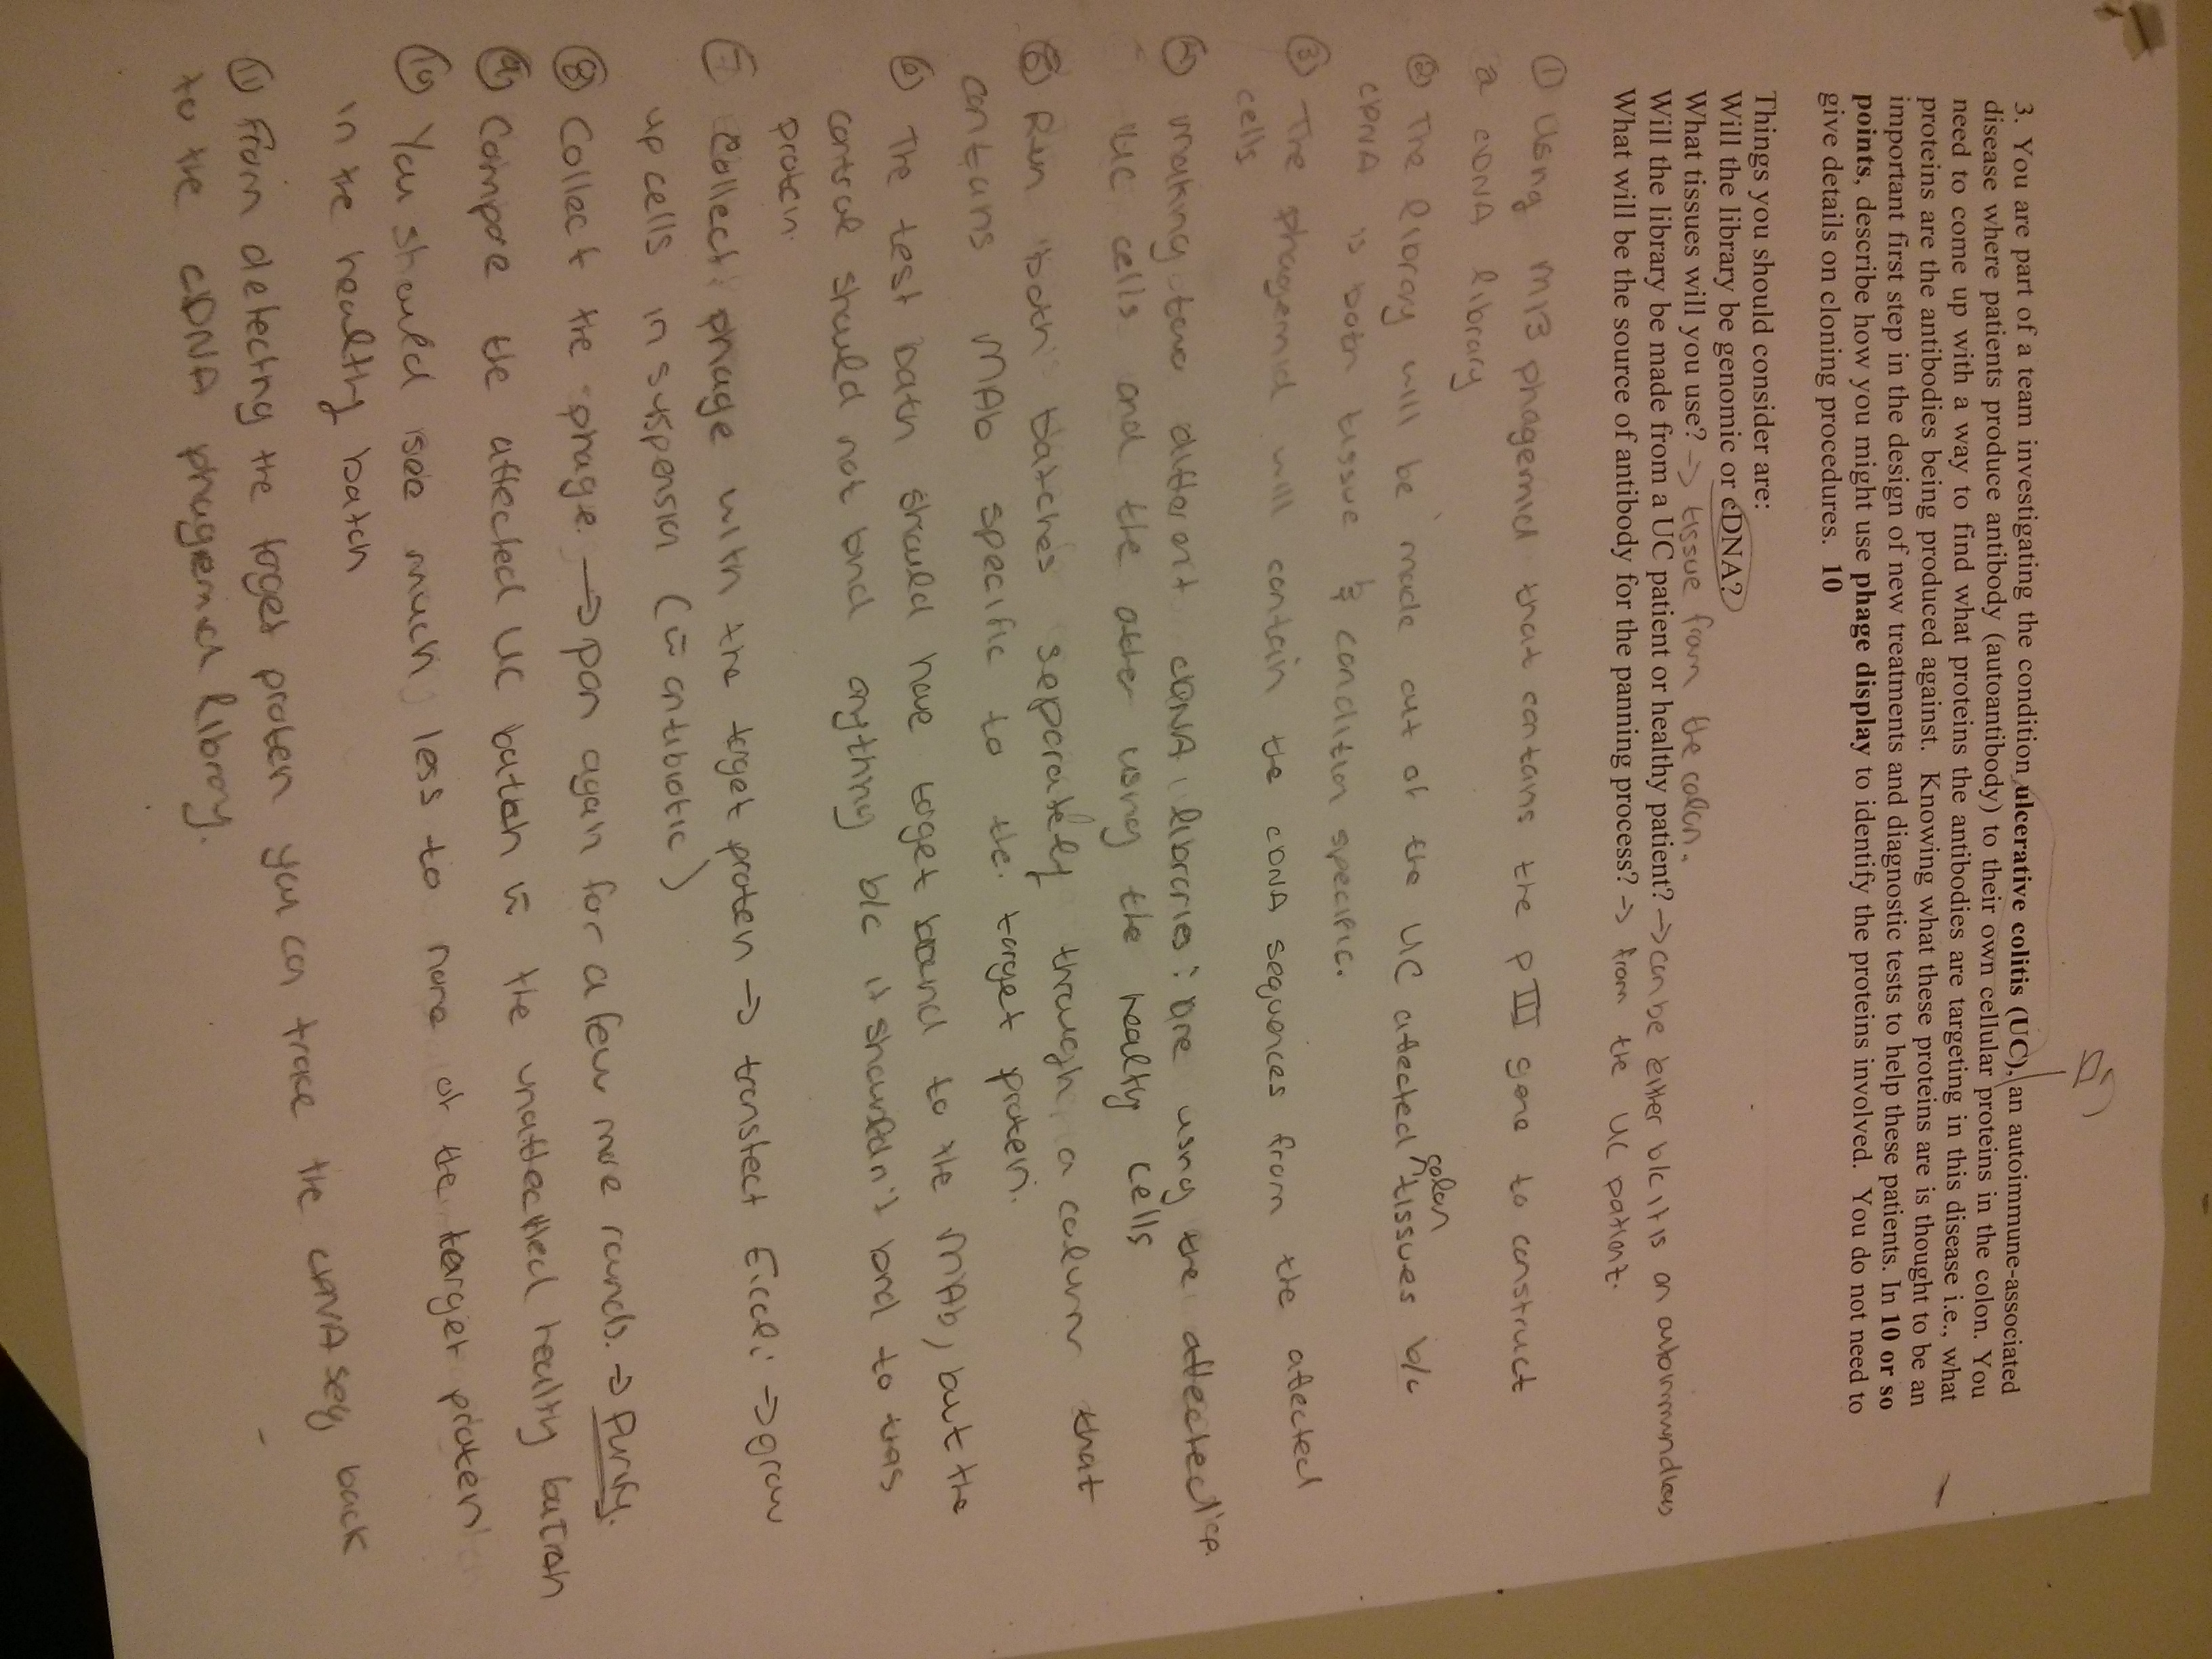 3. You are part of a team investigating the condition ulcerative colitis (UC), an autoimmune-associated
disease where patients produce antibody (autoantibody) to their own cellular proteins in the colon. You
need to come up with a way to find what proteins the antibodies are targeting in this disease i.e., what
proteins are the antibodies being produced against. Knowing what these proteins are is thought to be an
important first step in the design of new treatments and diagnostic tests to help these patients. In 10 or so
points, describe how you might use phage display to identify the proteins involved. You do not need to
give details on cloning procedures. 10
Things you should consider are:
Will the library be genomic or cDNA?
What tissues will you use? -> tissue from the colon.
Will the library be made from a UC patient or healthy patient? -> can be either b/c it is an autoimmune
What will be the source of antibody for the panning process? -> from the UC patient.
① Using M13 phagemid that contains the pIII gene to construct
a cDNA library
② The library will be made out of the UC affected colon tissues b/c
cDNA is both tissue & condition specific.
③ The phagemid will contain the cDNA sequences from the affected
cells
④ making two different cDNA libraries: one using the affected
UC cells and the other using the healthy cells
⑤ Run both batches separately through a column that
contains MAb specific to the target protein.
⑥ The test batch should have target bound to the MAb, but the
control should not bind anything b/c it shouldn't bind to this
protein.
⑦ Collect phage with the target protein -> transfect E.coli -> grow
up cells in suspension (w̄ antibiotic)
⑧ Collect the phage. -> pan again for a few more rounds. -> Purify.
⑨ Compare the affected UC batch w̄ the unaffected healthy batch
⑩ You should see much less to none of the target protein
in the healthy batch
⑪ From detecting the target protein you can trace the cDNA seq back
to the cDNA phagemid library.